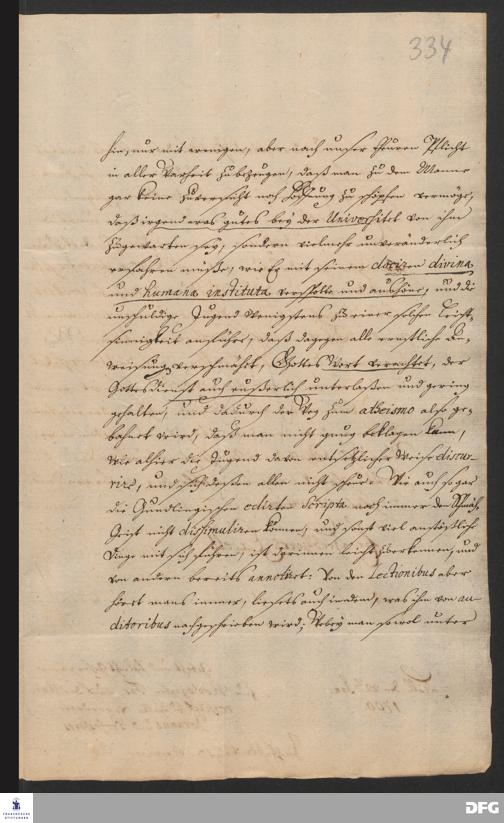 334
hin, nur mit wenigen, aber nach unser theuren Pflicht
in aller Warheit zubezeugen, daß man zu dem Manne
gar keine Zuversicht noch Hoffnung zu schöpfen vermöge,
daß irgend was gutes bey der Universitet von ihm
zugewarten sey, sondern vielmehr unveränderlich
erfahren müße, wie Er mit seinem dociren divina
und humana instituta verspotte und aushöne, und die
unschuldige Jugend wenigstens zu einer solchen Leicht-
sinnigkeit anführet, daß dagegen alle ernstliche An-
weisung verschmähet, Gottes Wort verachtet, der
Gottesdienst auch eußerlich unterlaßen und gering
gehalten, und dadurch der Weg zum atheismo also ge-
bahnet wird, daß man nicht gnug beklagen kann,
wie alhier die Jugend davon entsetzlicher Weise discur-
rire, und sich deßen allen nicht scheue. Wie auch sogar
die Gundlingischen edirten Scripta noch immer den Schmäh-
Geist nicht dissimuliren können, und sonst viel anstößliche
Dinge mit sich führen, ist darinnen leicht zu erkennen, und
von andern bereits annotiret: Von den Lectionibus aber
höret mans immer, lieset auch in dem, was ihm von au-
ditoribus nachgeschrieben wird; Wobey man sowol unter
FRANCKESCHE STIFTUNGEN
DFG